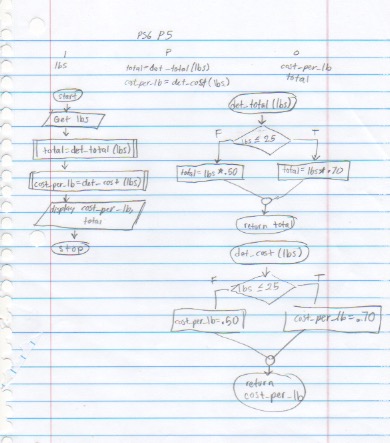 PS6 P5
I P O
lbs total=det_total(lbs) cost_per_lb
cost_per_lb=det_cost(lbs) total
start
Get lbs
total=det_total(lbs)
cost_per_lb=det_cost(lbs)
display cost_per_lb,
total
stop
det_total(lbs)
F T
lbs ≤ 25
total=lbs*.50 total=lbs*.70
return total
det_cost(lbs)
F T
lbs ≤ 25
cost_per_lb=.50 cost_per_lb=.70
return
cost_per_lb